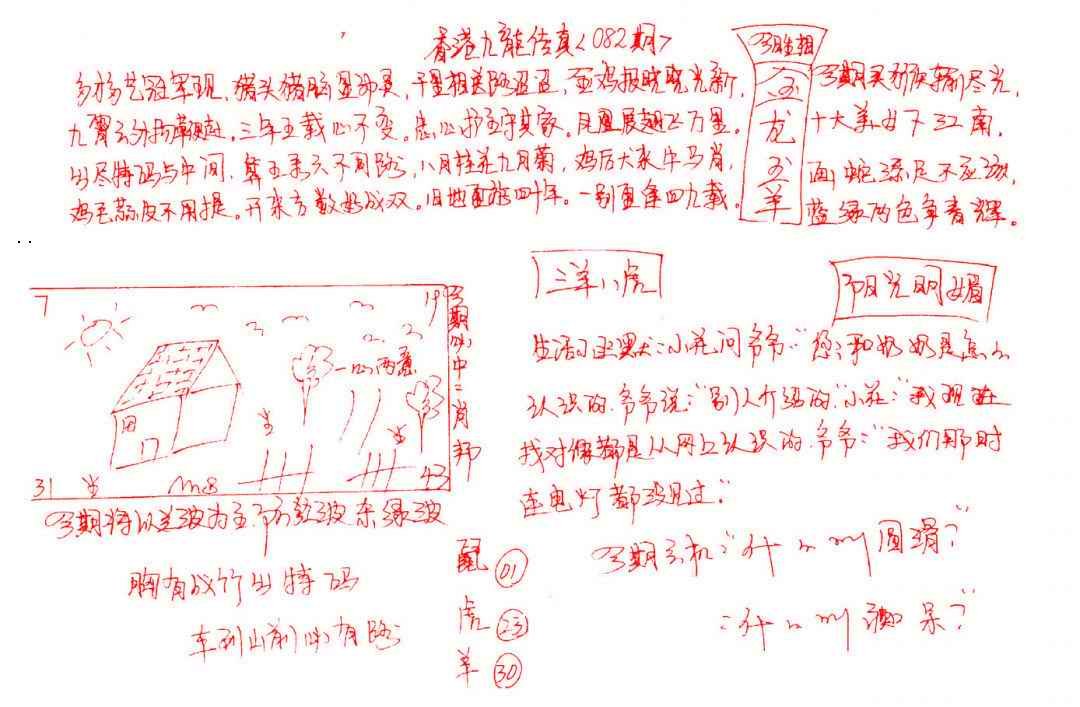 香港九龍传真<082期>
多才多艺冠军现，猪头猪脑显神灵，千里相送路迢迢，金鸡报晓晓光新，
九霄云外扬鞭赶，三年五载心不变。忠心护主守其家。凤凰展翅飞万里。
出尽特码与中间，单五乘六不同路，八月桂花九月菊，鸡后大来牛马肖，
鸡毛蒜皮不用提。开来方数好成双。旧地重游四十年。一别重逢四九载。
今期生肖
金
龙
玉
羊
今期买 尽光，
十大美女下江南，
画蛇添足不应该，
蓝绿两色争春辉。
三羊八虎
阳光明媚
7
19
31
43
一心两意
今期必中二肖邦
今期特以 波为主 防红波 杀绿波
胸有成竹出特码
车到山前必有路
鼠 01
虎 23
羊 30
生活小幽默:小 问爷爷:"您和奶奶是怎么
认识的.爷爷说:"别人介绍的".小 :"我现在
找对像都是从网上认识的.爷爷:"我们那时
连电灯都没见过"
今期玄机:"什么叫圆滑?"
:"什么叫 呆?"